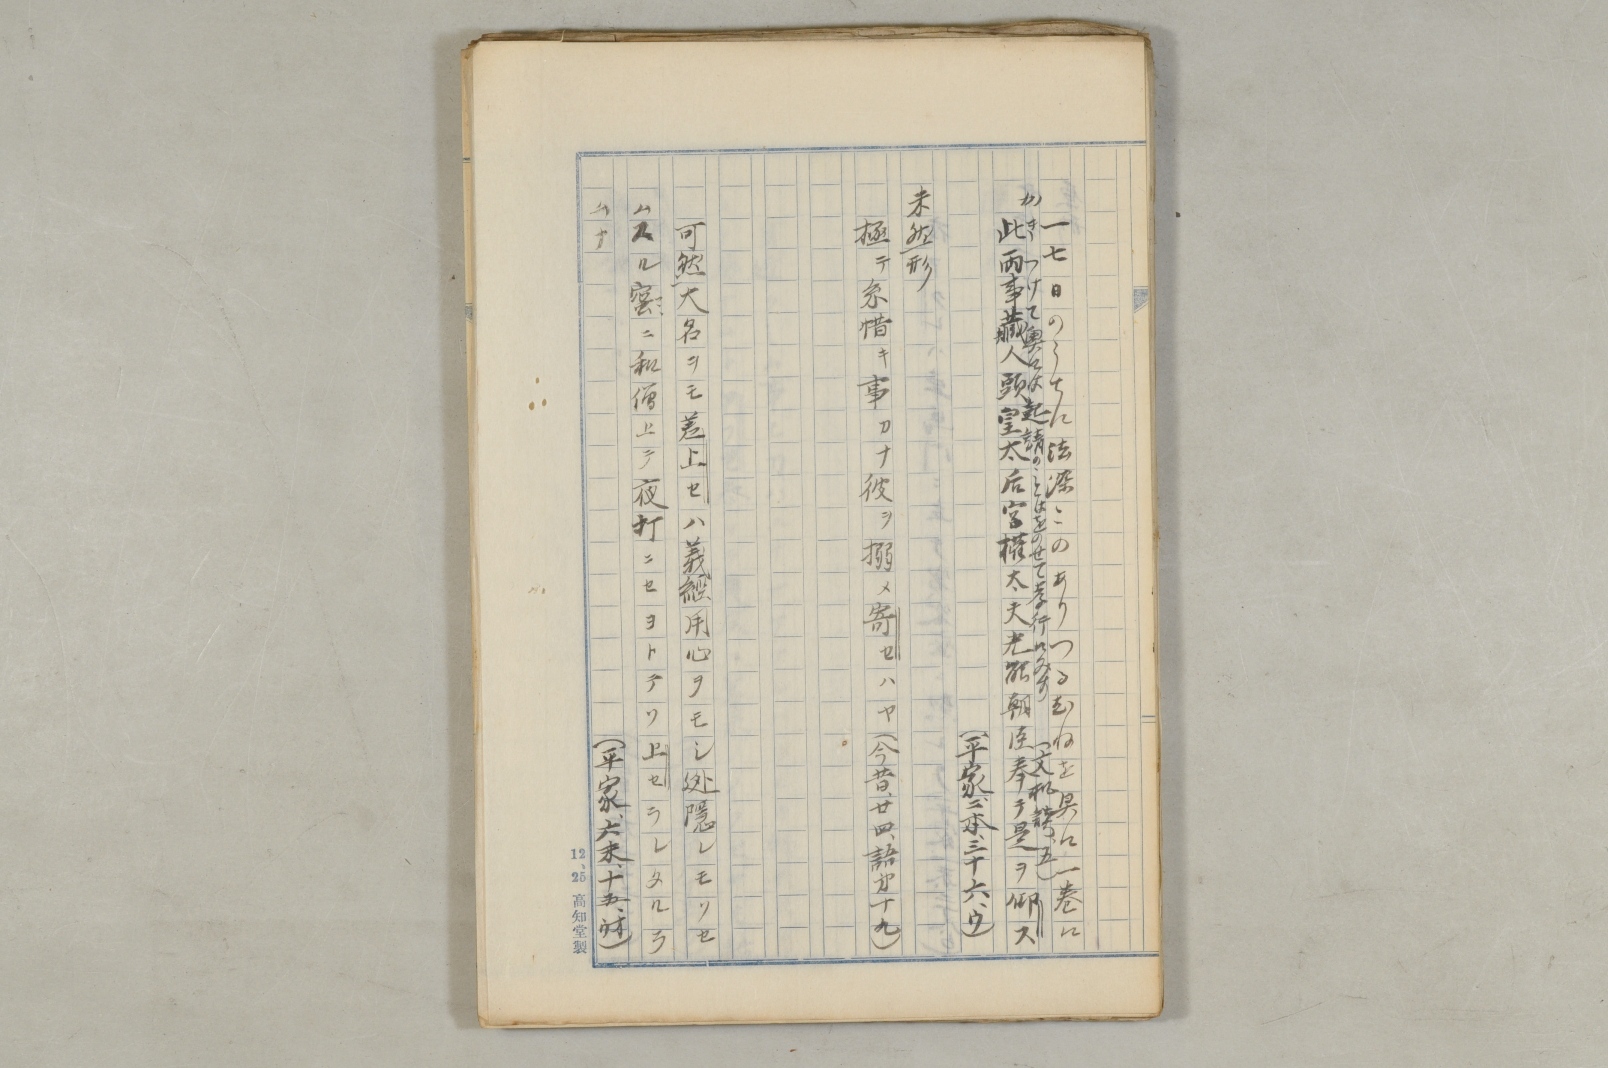 一七日のうちに法深このありつるむねを具に一巻に
かきつけて奥には起請のことはをのせて孝行にみす
(文机談、五)
此両事蔵人頭皇太后宮権太夫光能朝臣奉テ是ヲ仰ス
(平家二本、三十六、ウ)
未然形
極テ糸惜キ事カナ彼ヲ搦メ寄セハヤ(今昔、廿四、語第十九)
可然大名ヲモ差上セハ義経用心ヲモシ逃隠レモソセ
ムスル密ニ和僧上テ夜打ニセヨトテソ上セラレタルラ
ムナ
(平家、六末、十五、ウオ)
12、25 高知堂製